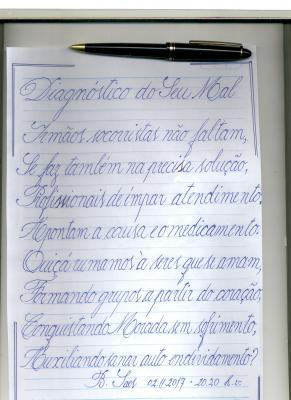 Diagnóstico do Seu Mal
Irmãos, socorristas não faltam,
Se faz também na precisa solução,
Profissionais de ímpar atendimento;
Apontam a causa e o medicamento.
Quiçá rumamos à seres que se amam,
Formando grupos a partir do coração,
Conquistando Morada sem sofrimento,
Auxiliando sanar auto endividamento?
02.11.2017 - 20.20 h.